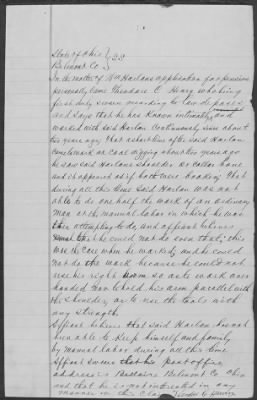 State of Ohio } SS
Belmont Co }
In the matter of Wm Harlans application for pension
personally Came Theodore C. Henry who being
first duly sworn according to law deposes
and says that he has known intimately and
worked with said Harlan Continuously since about
two years ago, that when said Harlan
Commenced on Coal digging about two years ago
he saw said Harlans Shoulder or Collar bone
and it appeared as if both were broken, that
during all this time said Harlan was not
able to do one half the work of an ordinary
man at the manual labor in which he was
then attempting to do, and affiant believes
that he could not do even that, this
was the case when he worked, and he could
not do the work because he could not
use his right arm so as to work over
handed or to hold his arm parallel with
the shoulder, or to use the tools with
any strength.
Affiant believes that said Harlan has not
been able to keep himself and family
by manual labor during all this time
Affiant swears that his post office
address is Bellaire Belmont Co Ohio
and that he is not interested in any
manner in this Claim Theodore C Henry